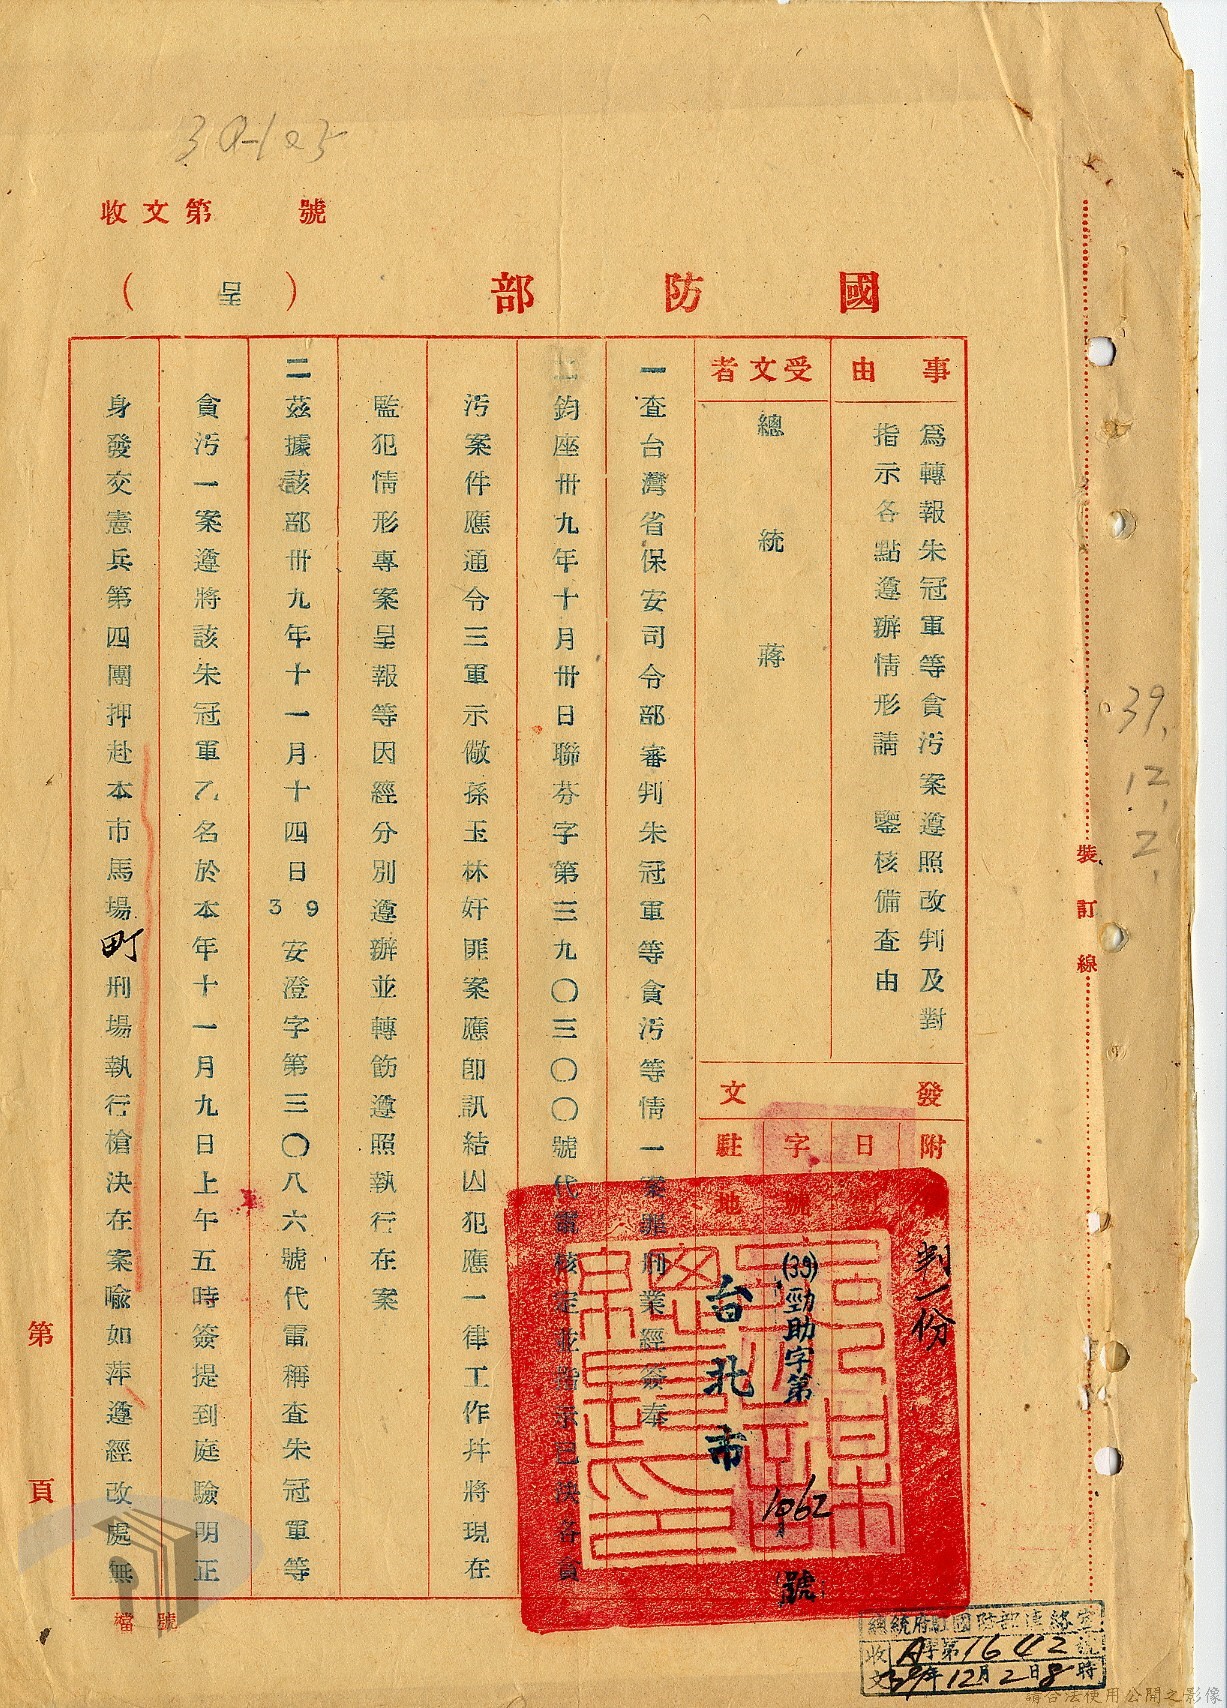 39-105
收文第　　號
國防部（呈）
事由
為轉報朱冠軍等貪污案遵照改判及對
指示各點遵辦情形請　鑒核備查由
受文者
總統蔣
發文
附
判一份
日
字號
(39)勁助字第1062號
駐地
台北市
一查台灣省保安司令部審判朱冠軍等貪污等情一案罪刑業經簽奉
鈞座卅九年十月卅日聯芬字第三九〇三〇〇號代電核定並指示已決各貪
污案件應通令三軍示儆孫玉林奸匪案應卽訊結囚犯應一律工作幷將現在
監犯情形專案呈報等因經分別遵辦並轉飭遵照執行在案
二茲據該部卅九年十一月十四日39安澄字第三〇八六號代電稱查朱冠軍等
貪污一案遵將該朱冠軍乙名於本年十一月九日上午五時簽提到庭驗明正
身發交憲兵第四團押赴本市馬場町刑場執行槍決在案喩如萍遵經改處無
第　頁
檔號
裝訂線
39.12.2.
總統府駐國防部連絡室
收文 A字第1642號
39年12月2日8時
請合法使用公開之影像